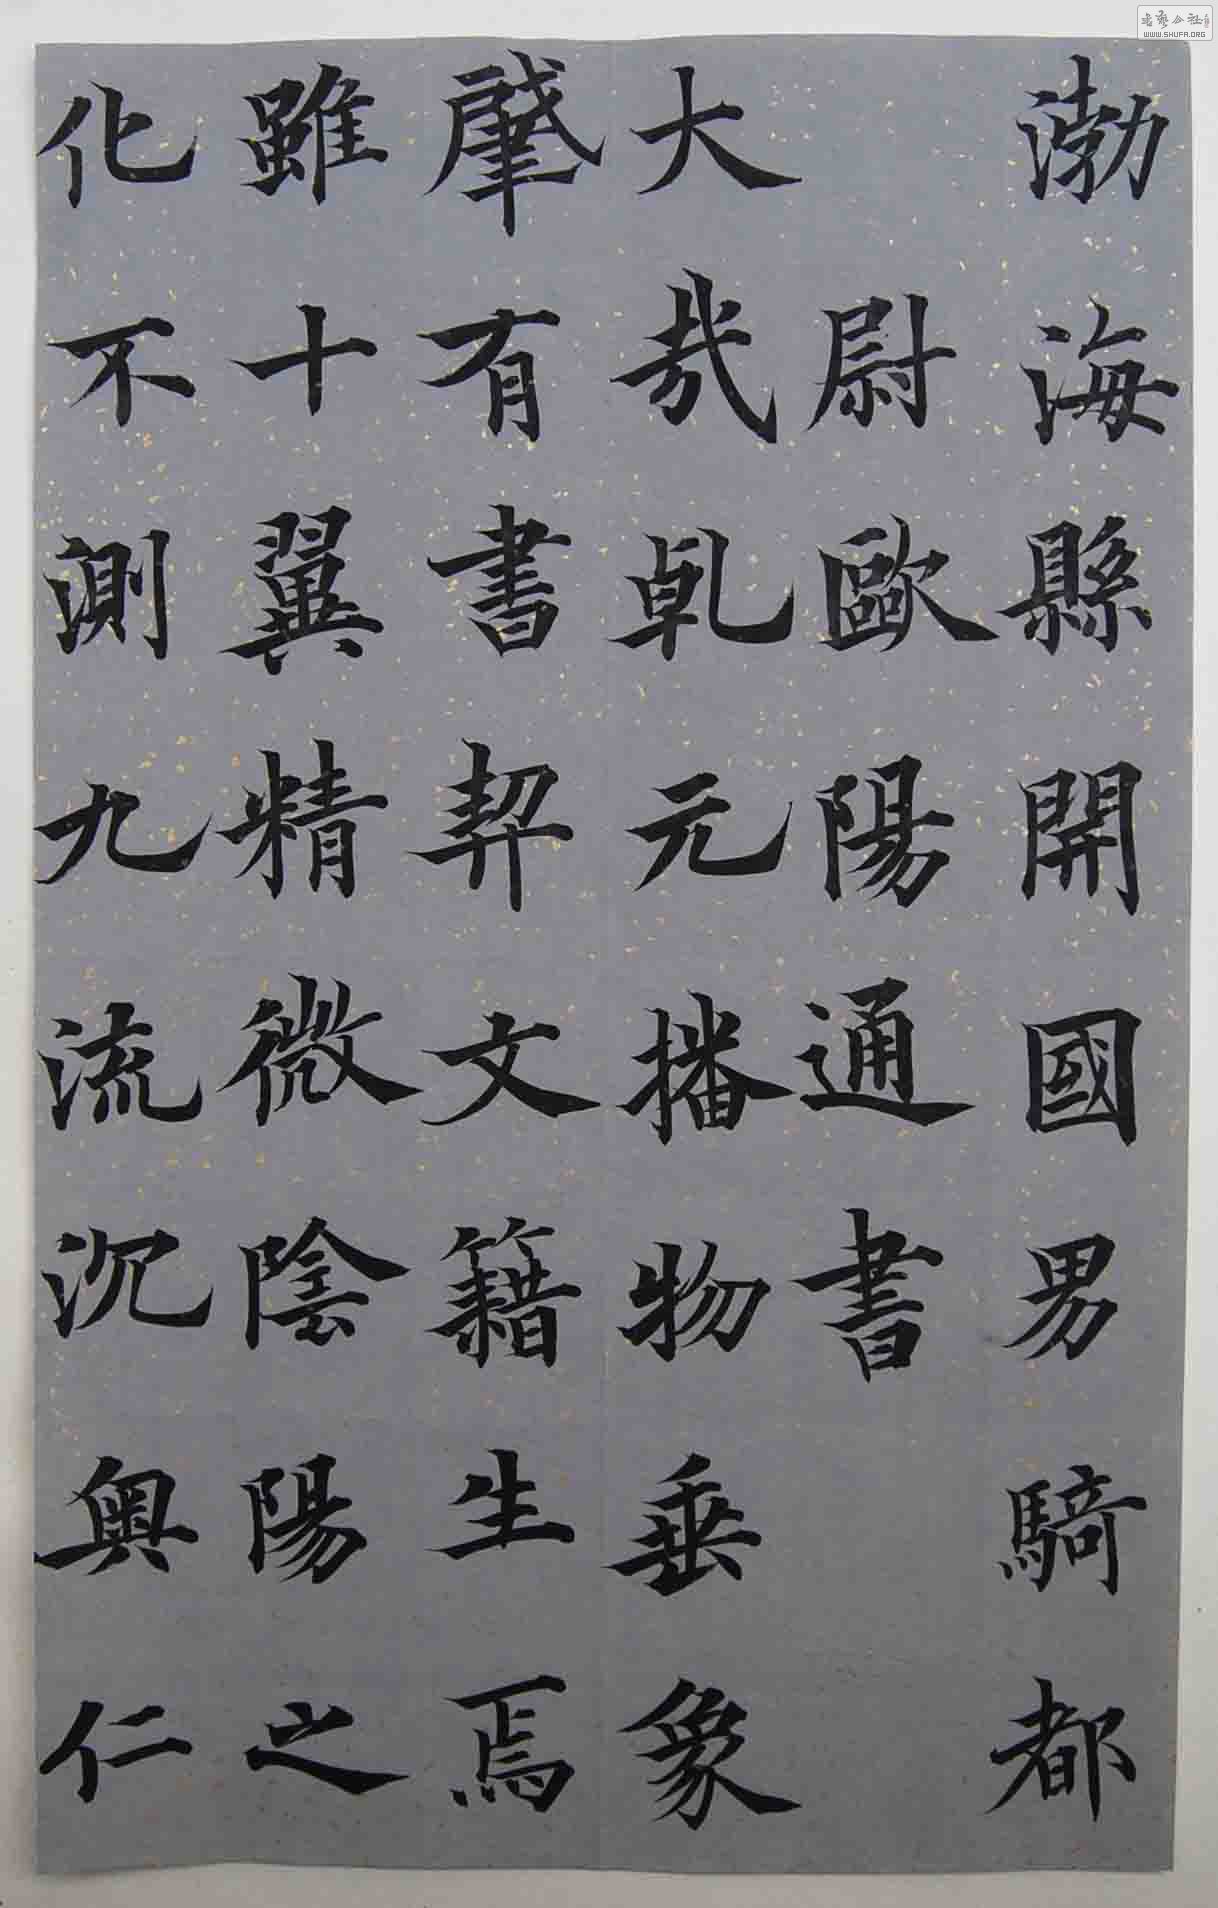 渤海縣開國男騎都
尉歐陽通書
大哉乹元播物垂象
肇有書契文籍生焉
雖十翼精微陰陽之
化不測九流沉奥仁
WWW.SHUFA.ORG